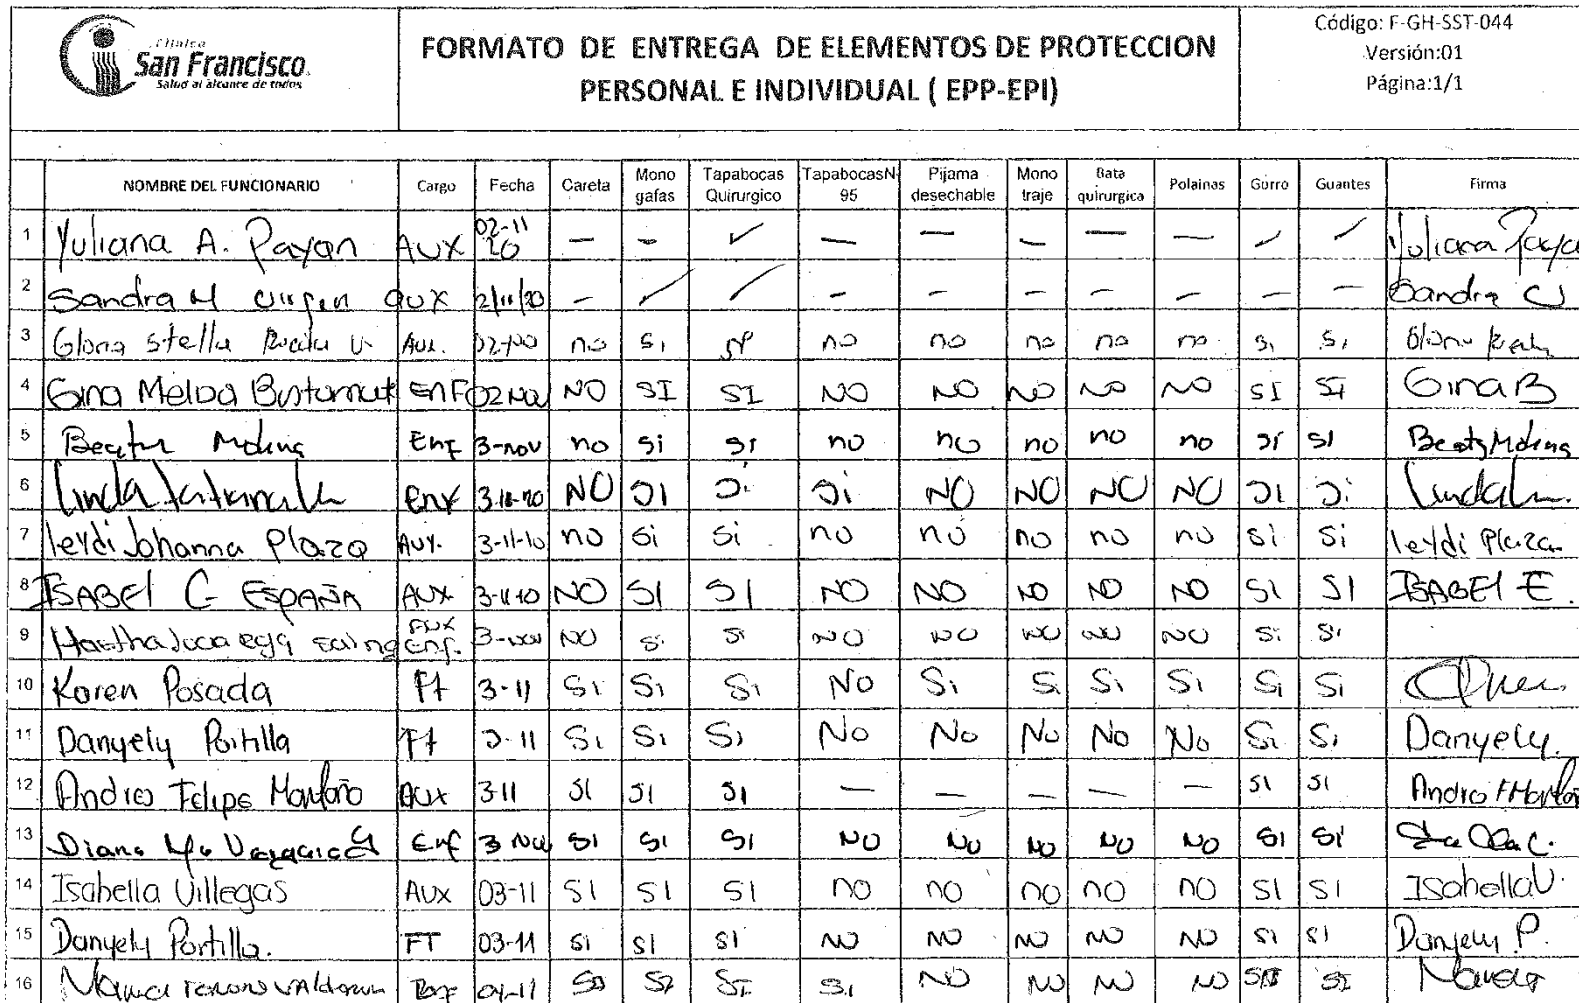 Clínica
San Francisco.
Salud al alcance de todos
FORMATO DE ENTREGA DE ELEMENTOS DE PROTECCION
PERSONAL E INDIVIDUAL ( EPP-EPI)
Código: F-GH-SST-044
Versión:01
Página:1/1
NOMBRE DEL FUNCIONARIO Cargo Fecha Careta Mono gafas Tapabocas Quirurgico TapabocasN-95 Pijama desechable Mono traje Bata quirurgica Polainas Gorro Guantes Firma
1 Yuliana A. Payan AUX 02-11 20 — — ✓ — — — — — ✓ ✓ Yuliana Paya
2 Sandra M aux 2/11/20 — ✓ ✓ — — — — — — — Sandra
3 Gloria Stella Aux. no si no no no no no si si
4 Gina Melba EnF 02 Nov NO SI SI NO NO NO NO NO SI SI Gina B
5 Molina Enf 3-nov no si si no no no no no si si Beatz Molina
6 Linda Enf NO SI Si Si NO NO NO NO SI Si
7 leydi Johanna Plaza Aux. no Si Si no no no no no Si Si leydi Plaza
8 ISABEl C ESPAÑA AUX NO SI SI NO NO NO NO NO SI SI ISABEl E.
9 Aux Enf. 3-nov NO Si Si NO NO NO NO NO Si Si
10 Karen Posada Ft 3-11 Si Si Si No Si Si Si Si Si Si
11 Danyely Portilla Ft 3-11 Si Si Si No No No No No Si Si Danyely.
12 Andres Felipe Montaño Aux 3-11 SI SI SI — — — — — SI SI
13 Diana Enf 3 Nov SI SI SI NO NO NO NO NO SI SI
14 Isabella Villegas AUX 03-11 SI SI SI no no no no no SI SI Isabella V.
15 Danyely Portilla. FT 03-11 SI SI SI NO NO NO NO NO SI SI Danyely P.
16 04-11 SI SI Si NO NO NO NO SI